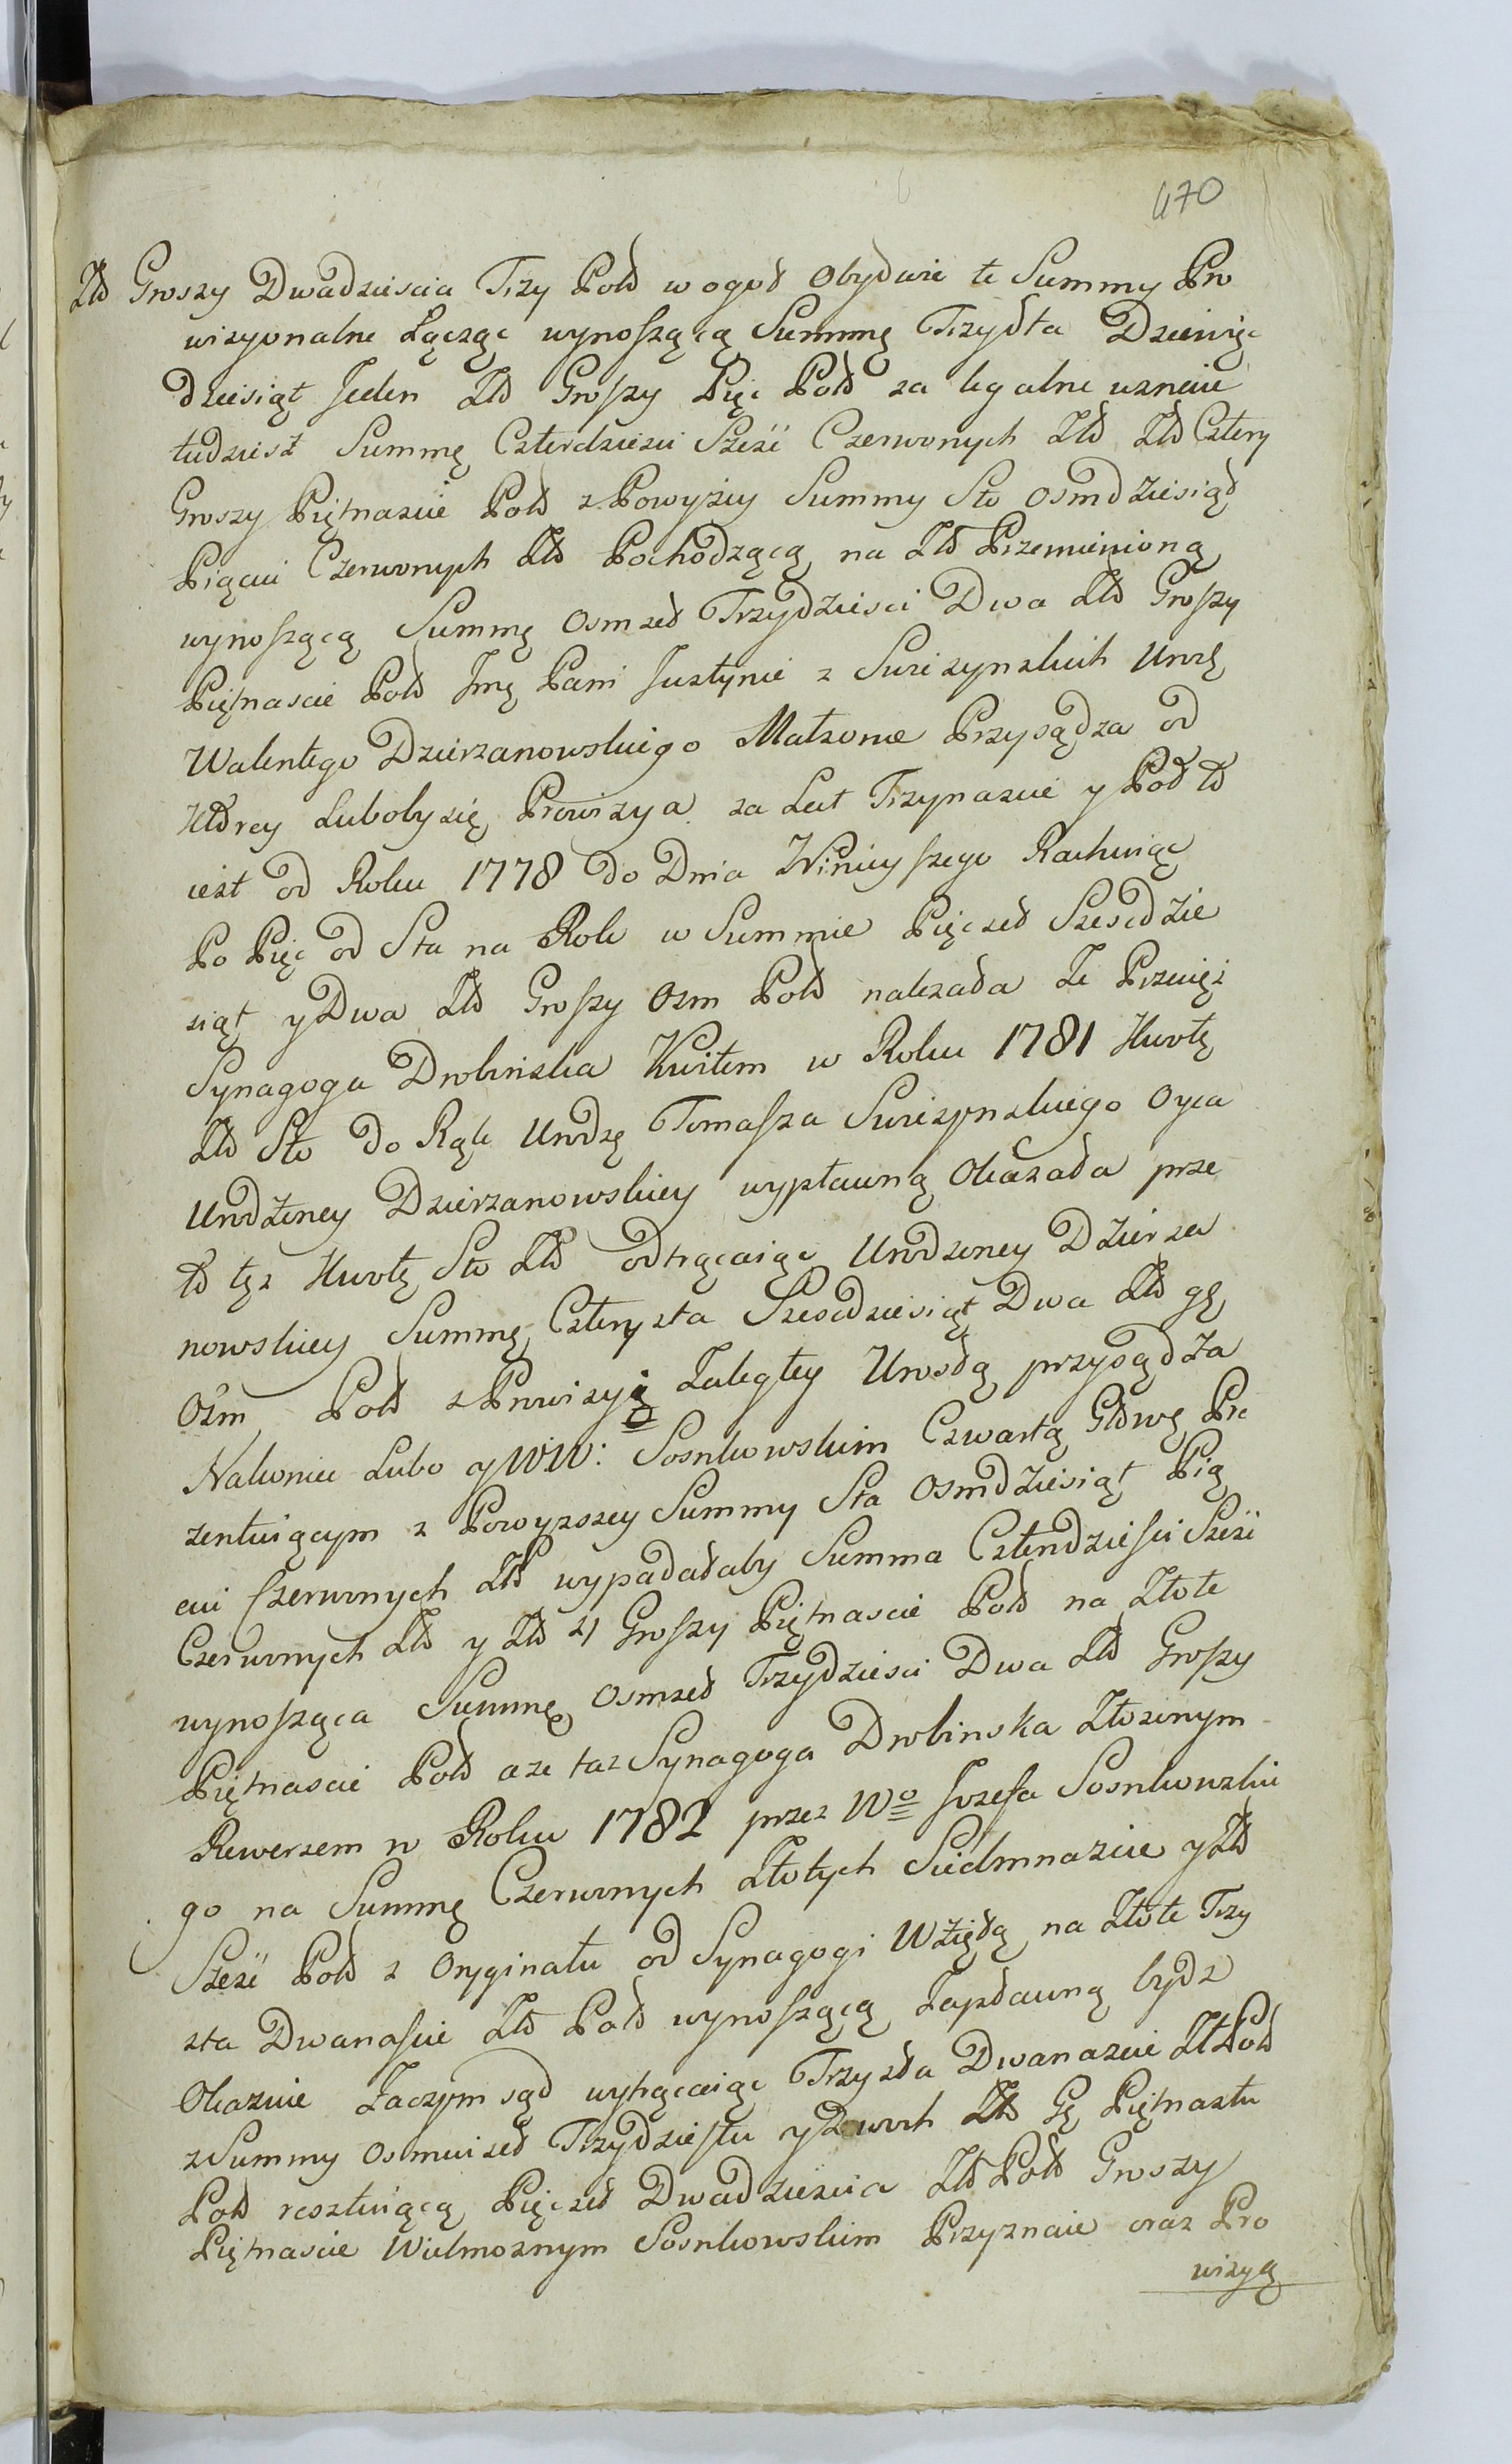 470
Złł Groszy Dwadziescia Trzy Połł w ogoł Obydwie te Summy Pro
wizyonalne Łącząc wynoszącą Summę Trzysta Dziewięc
dziesiąt Jeden Złł Groszy Pięc Poll za legalne uznaie
tudziesz Summę Czterdziesci Szesc Czerwonych Złł Złł Cztery
Groszy Piętnascie Poll z Powyzey Summy Sto osmdziesiąt
Piąciu Czerwonych Złł Pochodzącą na Złł Przemienioną
wynoszącą Summę Osmset Trzydziesci Dwa Złł Groszy
Piętnascie Poll Jmę Pani Justynie z Swiezynskich Urodz
Walentego Dzierzanowskiego Małzonce Przysądza od
ktorey Lubobysię Prowizya za Lat Trzynascie y Poł to
iest od Roku 1778 do Dnia Ninieyszego Rachuiąc
Po Pięc od Sta na Rok w Summie Pięcset Szescdzie
siąt y Dwa Złł Groszy Osm Poll nalezała Ze Przeciez
Synagoga Drobinska Kwitem w Roku 1781 Kwotę
Złł Sto do Rąk Urodzę Tomasza Swiezynskiego Oyca
Urodzoney Dzierzanowskiey wypłaconą Okazała prze
to tęz Kwotę Sto Złł odtrącaiąc Urodzoney Dzierza
nowskiey Summę Czterysta Szescdziesiąt Dwa Złł gę
Osm Poll z Prowizyi Zaległey Urosłą przysądza
Nakoniec Lubo y WW: Sosnkowskim Czwartą Głowę Pre
zentuiącym z Powyzszey Summy Sta Osmdziesiąt Pię
ciu Czerwonych Złł wypadałaby Summa Czterdziesci Szesc
Czerwonych Złł y Złł 4 Groszy Piętnascie Poll na Złote
wynosząca Summę Osmset Trzydziesci Dwa Złł Groszy
Piętnascie Poll aze taz Synagoga Drobinska Złozonym
Rewersem w Roku 1782 przez Wo Jozefa Sosnkowskie
go na Summę Czerwonych Złotych Siedmnascie y Złł
Szesc Poll z Oryginału od Synagogi Wziętą na Złote Trzy
sta Dwanascie Złł Poll wynoszącą Zapłaconą bydz
Okazuie Zaczym sąd wytrącaiąc Trzysta Dwanascie Złł Poll
z Summy Osmiuset Trzydziestu y Dwoch Złł Gę Piętnastu
Poll resztuiącą Pięcset Dwadziescia Złł Poll Groszy
Piętnascie Wielmoznym Sosnkowskim Przyznaie oraz Pro
wizyą